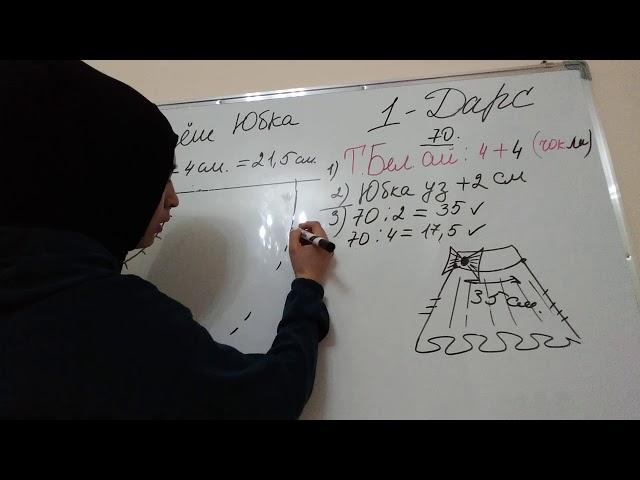 ёш Юбка
4 см. = 21,5 см.
1-Дарс
70.
1) Т.Бел ай : 4 + 4 (чокла)
2) Юбка уз + 2 см
3) 70 : 2 = 35 ✓
70 : 4 = 17,5 ✓
35 см.